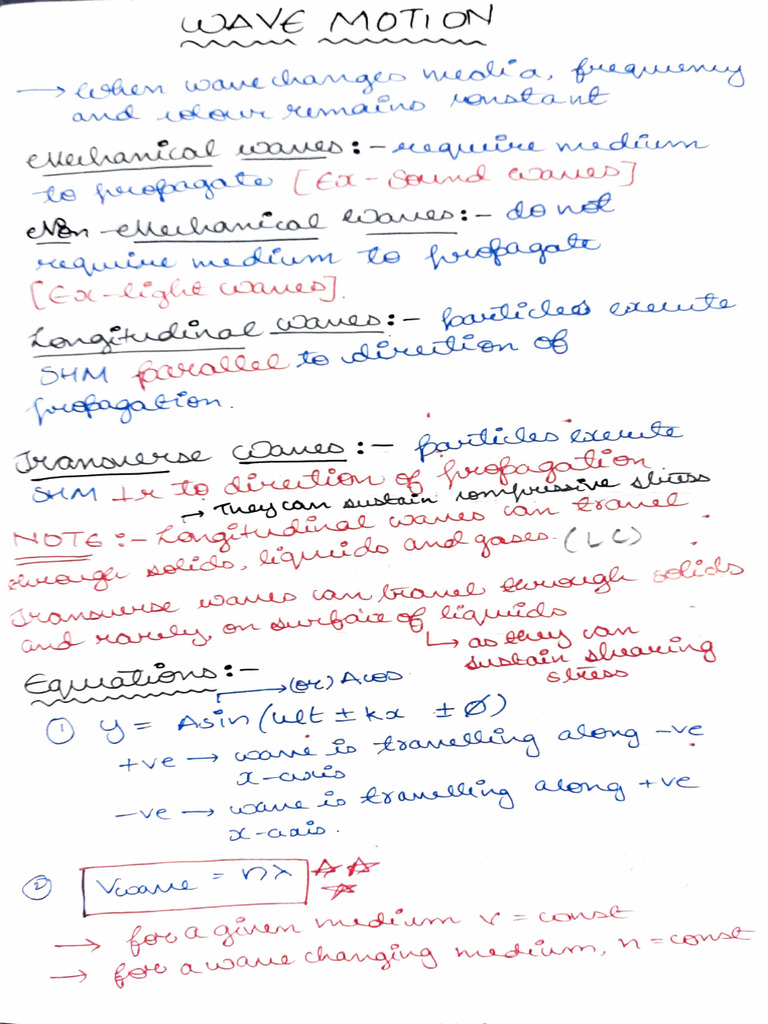 WAVE MOTION
→ When wave changes media, frequency
and colour remains constant
Mechanical waves:- require medium
to propagate [Ex-Sound waves]
Non-Mechanical Waves:- do not
require medium to propagate
[Ex-light waves].
Longitudinal waves:- particles execute
SHM parallel to direction of
propagation.
Transverse Waves:- particles execute
SHM ⊥r to direction of propagation
→ They can sustain compressive stress
NOTE:- Longitudinal waves can travel
through solids, liquids and gases. (LC)
Transverse waves can travel through solids
and rarely, on surface of liquids
↳ as they can
sustain shearing
stress
Equations:-
→ (or) Acos
① y = Asin(ωt ± kx ± Ø)
+ve → wave is travelling along -ve
x-axis
-ve → wave is travelling along +ve
x-axis.
② Vwave = nλ
→ for a given medium v = const
→ for a wave changing medium, n = const